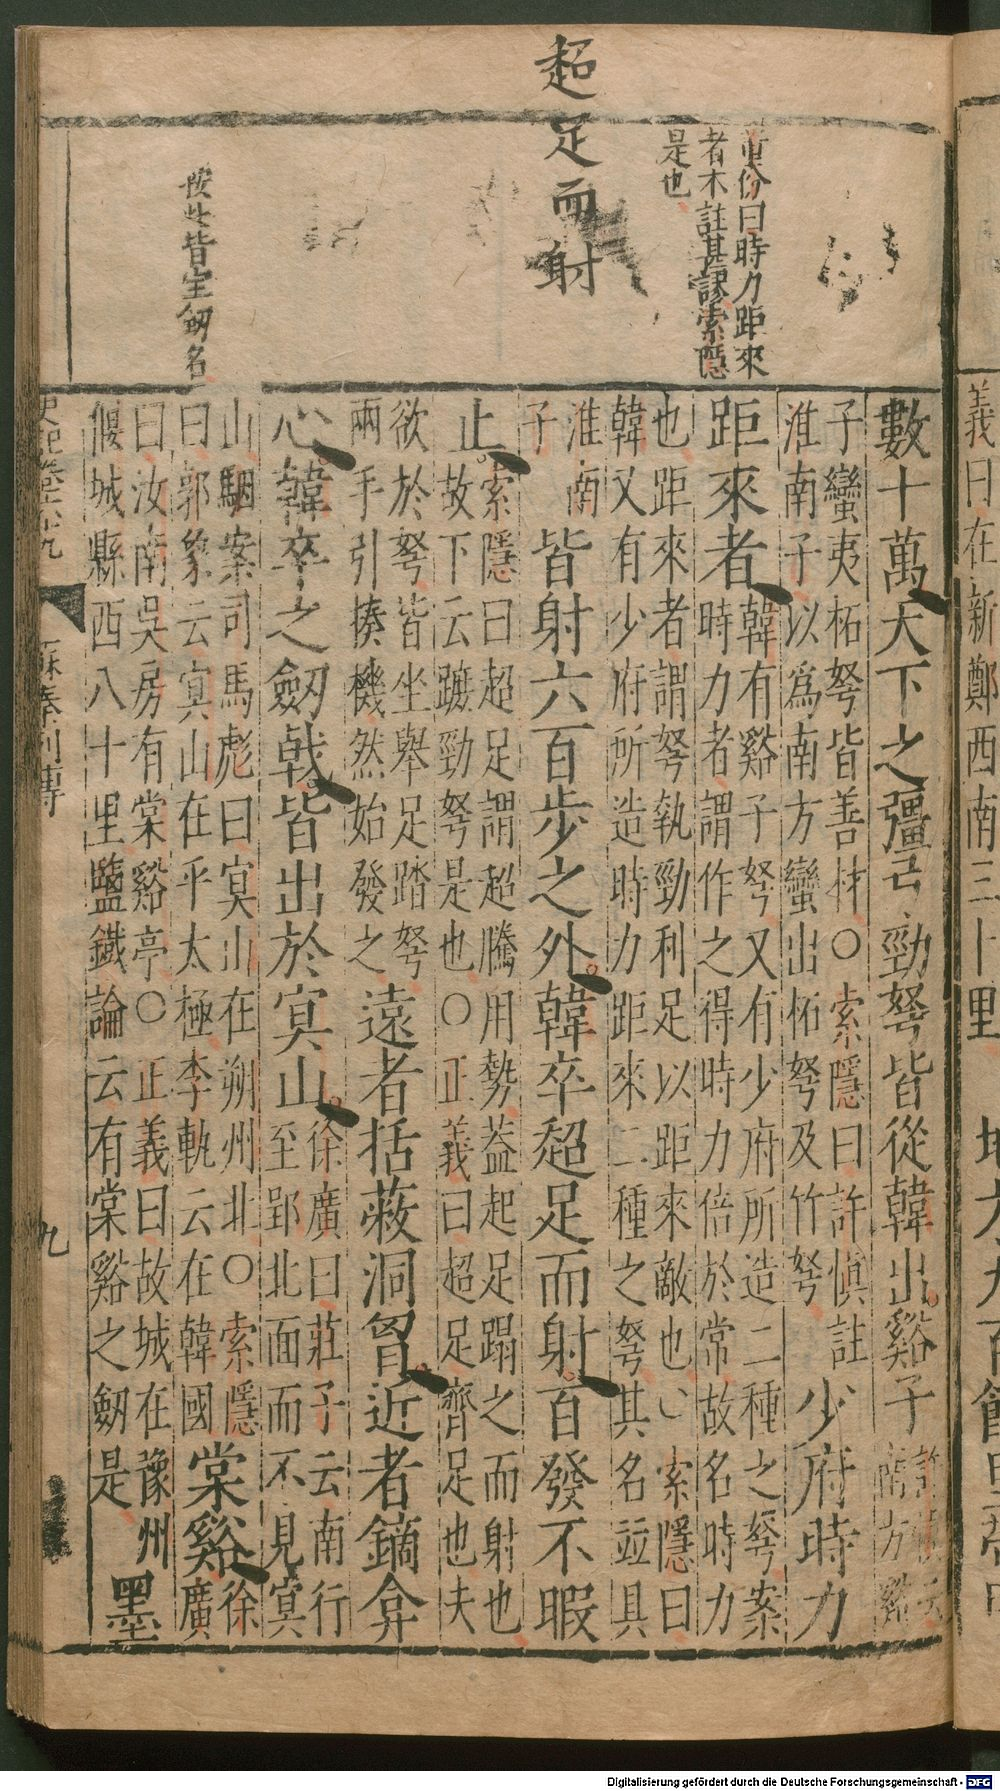 超足而射
董份曰時力距來
者不註甚謬索隱
是也
按此皆寶劒名
數十萬天下之彊弓勁弩皆從韓出谿子
許慎云
南方谿
子蠻夷柘弩皆善材○索隱曰許慎註
淮南子以爲南方蠻出柘弩及竹弩
少府時力
距來者
韓有谿子弩又有少府所造二種之弩案
時力者謂作之得時力倍於常故名時力
也距來者謂弩執勁利足以距來敵也○索隱曰
韓又有少府所造時力距來二種之弩其名竝具
淮南
子
皆射六百步之外韓卒超足而射百發不暇
止
索隱曰超足謂超騰用勢蓋起足蹋之而射也
故下云蹠勁弩是也○正義曰超足齊足也夫
欲於弩皆坐舉足踏弩
兩手引揍機然始發之
遠者括蔽洞胷近者鏑弇
心韓卒之劒戟皆出於冥山
徐廣曰莊子云南行
至郢北面而不見冥
山駰案司馬彪曰冥山在朔州北○索隱
曰郭象云冥山在乎太極李軌云在韓國
棠谿
徐
廣
曰汝南吳房有棠谿亭○正義曰故城在豫州
偃城縣西八十里鹽鐵論云有棠谿之劒是
墨
史記卷六十九
蘇秦列傳
九
義曰在新鄭西南三十里
地方九百餘里帶甲
Digitalisierung gefördert durch die Deutsche Forschungsgemeinschaft - DFG